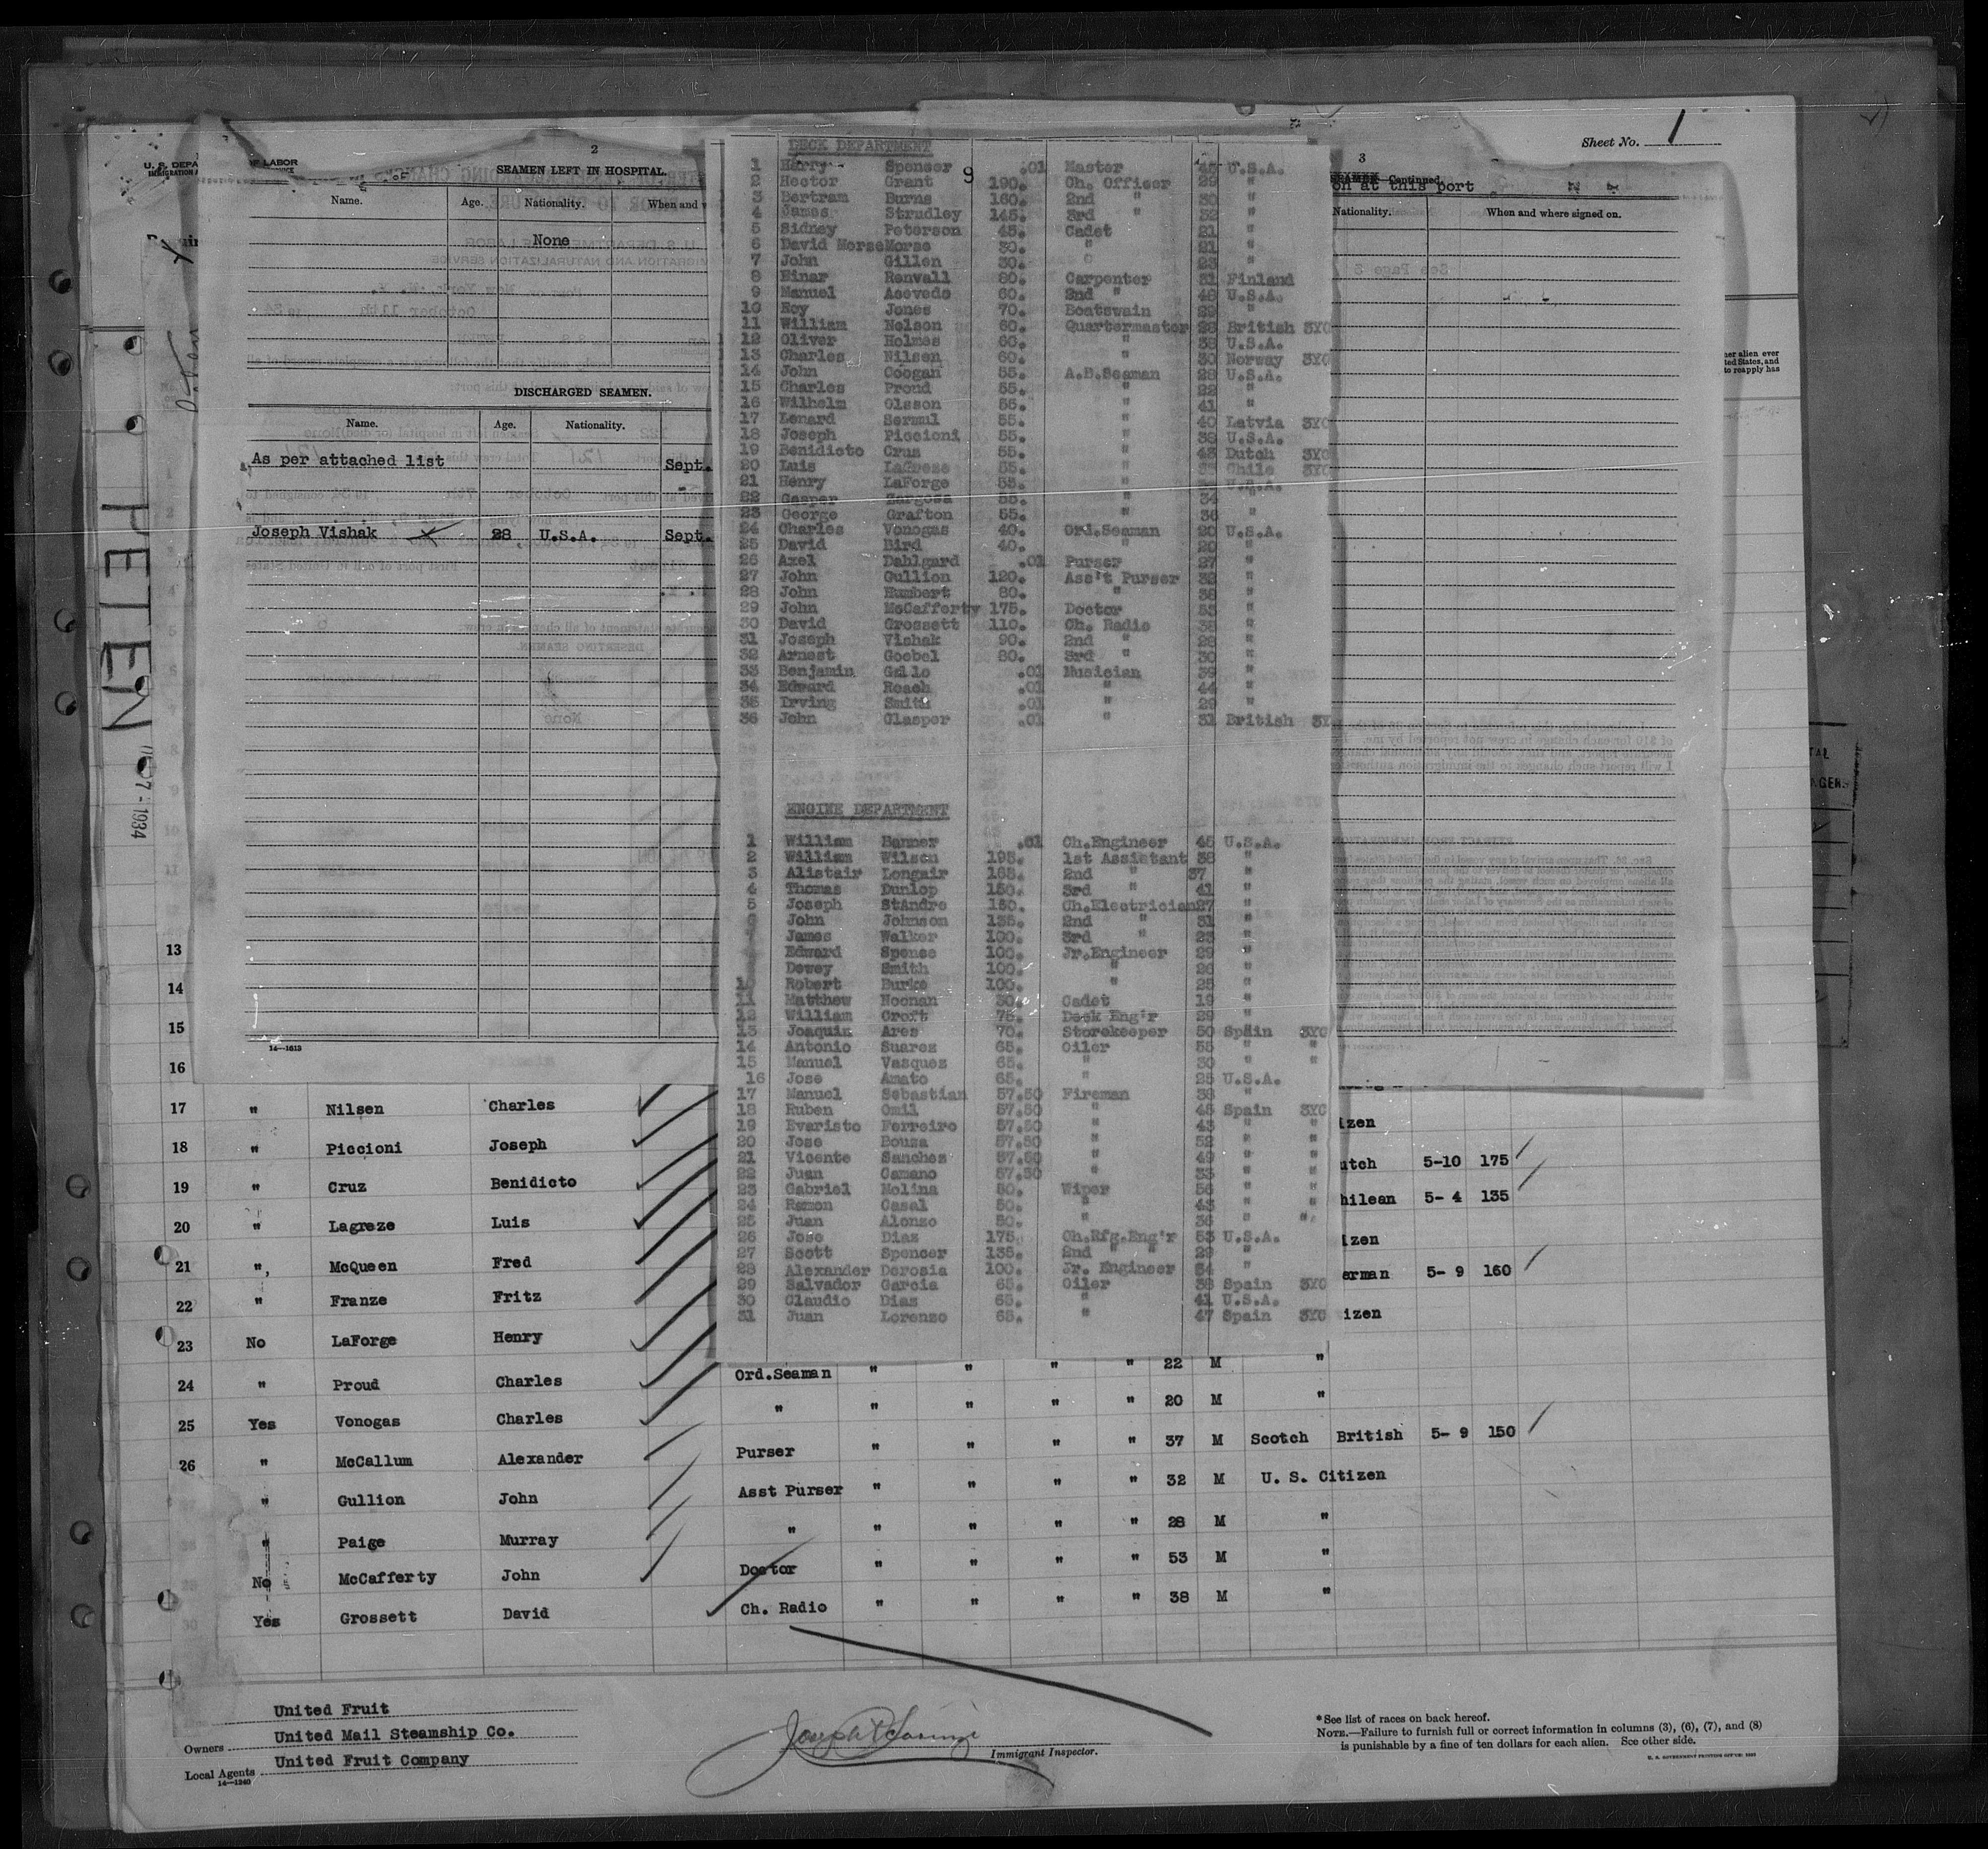 Sheet No. 1
OF LABOR
2
SEAMEN LEFT IN HOSPITAL.
Name. Age. Nationality. When and
None
DISCHARGED SEAMEN.
Name. Age. Nationality.
As per attached list Sept.
Joseph Vishak 28 U.S.A. Sept.
14—1613
PETEN
7-1934
3
Continued
on at this port
Nationality. When and where signed on.
DECK DEPARTMENT
1 Harry Spenser .01 Master 45 U.S.A.
9
2 Hector Grant 190. Ch. Officer 29 "
3 Bertram Burns 160. 2nd " 30 "
4 James Strudley 145. 3rd " 32 "
5 Sidney Peterson 45. Cadet 21 "
6 David Morse Morse 30. " 21 "
7 John Gillen 30. " 23 "
8 Einar Renvall 80. Carpenter 31 Finland
9 Manuel Acevedo 60. 2nd " 46 U.S.A.
10 Roy Jones 70. Boatswain 29 "
11 William Nelson 60. Quartermaster 28 British 3YC
12 Oliver Holmes 60. " 38 U.S.A.
13 Charles Nilsen 60. " 30 Norway 3YC
14 John Coogan 55. A.B.Seaman 28 U.S.A.
15 Charles Proud 55. " 22 "
16 Wilhelm Olsson 55. " 41 "
17 Lenard Sermul 55. " 40 Latvia 3YC
18 Joseph Piccioni 55. " 38 U.S.A.
19 Benidicto Crus 55. " 43 Dutch 3YC
20 Luis LaGreze 55. " Chile 3YC
21 Henry LaForge 55. " U.S.A.
22 Gasper 55. " 34
23 George Grafton 55. " 36 "
24 Charles Vonogas 40. Ord.Seaman 20 U.S.A.
25 David Bird 40. " 20 "
26 Axel Dahlgard .01 Purser 27 "
27 John Gullion 120. Ass't Purser 32 "
28 John Humbert 80. " 38 "
29 John McCafferty 175. Doctor 53 "
30 David Grossett 110. Ch. Radio 38 "
31 Joseph Vishak 90. 2nd " 28 "
32 Arnest Goebel 80. 3rd " 30 "
33 Benjamin Gillo .01 Musician 39 "
34 Edward Roach .01 " 44 "
35 Irving Smith .01 " 29 "
36 John Glasper .01 " 31 British 3Y
ENGINE DEPARTMENT
1 William Banner .01 Ch.Engineer 45 U.S.A.
2 William Wilson 195. 1st Assistant 38 "
3 Alistair Longair 165. 2nd " 37 "
4 Thomas Dunlop 150. 3rd " 41 "
5 Joseph StAndre 150. Ch.Electrician 27 "
6 John Johnson 135. 2nd " 31 "
7 James Walker 100. 3rd " 23 "
Edward Spence 100. Jr.Engineer 29 "
Dewey Smith 100. " 26 "
10 Robert Burke 100. " 25 "
11 Matthew Noonan 30. Cadet 19 "
12 William Croft 75. Deck Eng'r 29 "
13 Joaquin Ares 70. Storekeeper 50 Spain 3YC
14 Antonio Suarez 65. Oiler 55 " "
15 Manuel Vasquez 65. " 30 " "
16 Jose Amato 65. " 25 U.S.A.
17 Manuel Sebastian 57.50 Fireman 38 "
18 Ruben Omil 57.50 " 45 Spain 3YC
19 Evaristo Ferreiro 57.50 " 43 " "
20 Jose Bouza 57.50 " 52 " "
21 Vicente Sanches 57.50 " 49 " "
22 Juan Camano 57.50 " 33 " "
23 Gabriel Molina 50. Wiper 56 " "
24 Ramon Casal 50. " 43 " "
25 Juan Alonzo 50. " 36 " "
26 Jose Diaz 175. Ch.Rfg.Eng'r 53 U.S.A.
27 Scott Spencer 135. 2nd " " 29 "
28 Alexander Derosia 100. Jr. Engineer 34 "
29 Salvador Garcia 65. Oiler 38 Spain 3YC
30 Claudio Dias 65. " 41 U.S.A.
31 Juan Lorenzo 65. " 47 Spain 3YC
13
14
15
16
17 " Nilsen Charles izen
18 " Piccioni Joseph utch 5-10 175
19 " Cruz Benidicto hilean 5- 4 135
20 " Lagreze Luis izen
21 " McQueen Fred erman 5- 9 160
22 " Franze Fritz izen
23 No LaForge Henry
24 " Proud Charles Ord.Seaman " " " " 22 M "
25 Yes Vonogas Charles " " " " " 20 M "
26 " McCallum Alexander Purser " " " " 37 M Scotch British 5- 9 150
" Gullion John Asst Purser " " " " 32 M U. S. Citizen
" Paige Murray " " " " " 28 M "
No McCafferty John Doctor " " " " 53 M "
Yes Grossett David Ch. Radio " " " " 38 M "
United Fruit
Owners United Mail Steamship Co.
Local Agents United Fruit Company
14—1240
Immigrant Inspector.
*See list of races on back hereof.
NOTE.—Failure to furnish full or correct information in columns (3), (6), (7), and (8)
is punishable by a fine of ten dollars for each alien. See other side.